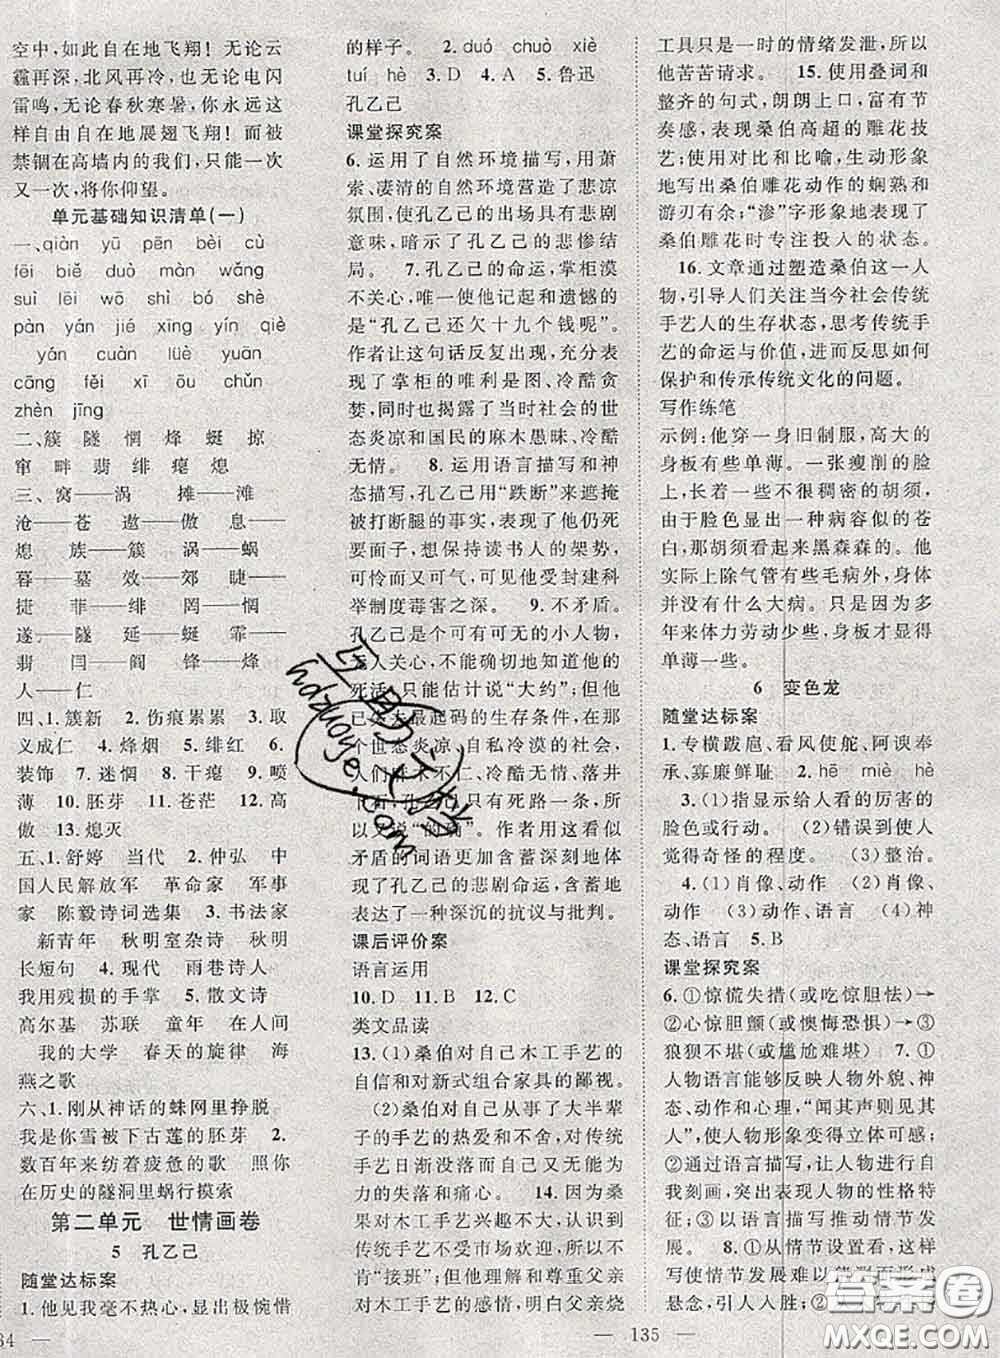 空中,如此自在地飞翔！无论云
霾再深,北风再冷,也无论电闪
雷鸣,无论春秋寒暑,你永远这
样自由自在地展翅飞翔！而被
禁锢在高墙内的我们,只能一次
又一次,将你仰望。
单元基础知识清单(一)
一、qiàn yū pēn bèi cù
fēi biě duò màn wǎng
suì lēi wō shì bó shè
pàn yán jié xīng yín qiè
yán cuàn lüè yuān
cāng fěi xī ōu chǔn
zhèn jīng
二、簇 隧 惘 烽 蜓 掠
窜 畔 翡 绯 瘪 熄
三、窝——涡 摊——滩
沧——苍 遨——傲 息——
熄 族——簇 涡——蜗
暮——墓 效——郊 睫——
捷 菲——绯 罔——惘
遂——隧 延——蜒 霏——
翡 闫——阎 锋——烽
人——仁
四、1.簇新 2.伤痕累累 3.取
义成仁 4.烽烟 5.绯红 6.
装饰 7.迷惘 8.干瘪 9.喷
薄 10.胚芽 11.苍茫 12.高
傲 13.熄灭
五、1.舒婷 当代 2.仲弘 中
国人民解放军 革命家 军事
家 陈毅诗词选集 3.书法家
新青年 秋明室杂诗 秋明
长短句 4.现代 雨巷诗人
我用残损的手掌 5.散文诗
高尔基 苏联 童年 在人间
我的大学 春天的旋律 海
燕之歌
六、1.刚从神话的蛛网里挣脱
我是你雪被下古莲的胚芽 2.
数百年来纺着疲惫的歌 照你
在历史的隧洞里蜗行摸索
第二单元 世情画卷
5 孔乙己
随堂达标案
1.他见我毫不热心,显出极惋惜
34
的样子。 2.duó chuò xiè
tuí hè 3.D 4.A 5.鲁迅
孔乙己
课堂探究案
6.运用了自然环境描写,用萧
索、凄清的自然环境营造了悲凉
氛围,使孔乙己的出场具有悲剧
意味,暗示了孔乙己的悲惨结
局。 7.孔乙己的命运,掌柜漠
不关心,唯一使他记起和遗憾的
是“孔乙己还欠十九个钱呢”。
作者让这句话反复出现,充分表
现了掌柜的唯利是图、冷酷贪
婪,同时也揭露了当时社会的世
态炎凉和国民的麻木愚昧、冷酷
无情。 8.运用语言描写和神
态描写,孔乙己用“跌断”来遮掩
被打断腿的事实,表现了他仍死
要面子,想保持读书人的架势,
可怜而又可气,可见他受封建科
举制度毒害之深。 9.不矛盾。
孔乙己是个可有可无的小人物,
无人关心,不能确切地知道他的
死活,只能估计说“大约”;但他
已失去最起码的生存条件,在那
个世态炎凉、自私冷漠的社会,
人们麻木不仁、冷酷无情、落井
下石,孔乙己只有死路一条,所
以又说“的确”。作者用这看似
矛盾的词语更含蓄深刻地体
现了孔乙己的悲剧命运,含蓄地
表达了一种深沉的抗议与批判。
课后评价案
语言运用
10.D 11.B 12.C
类文品读
13.(1)桑伯对自己木工手艺的
自信和对新式组合家具的鄙视。
(2)桑伯对自己从事了大半辈
子的手艺的热爱和对传统
手艺日渐没落而无能为力
的失落和痛心。 14.因为父
亲对木工手艺兴趣不大,认识到
传统手艺不受市场欢迎,所以不
肯“接班”;但他理解和尊重父亲
对木工手艺的感情,明白父亲烧
135
工具只是一时的情绪发泄,所以
他苦苦请求。 15.使用叠词和
整齐的句式,朗朗上口,富有节
奏感,表现桑伯高超的雕花技
艺;使用对比和比喻,生动形象
地写出桑伯雕花动作的娴熟和
游刃有余;“渗”字形象地表现了
桑伯雕花时专注投入的状态。
16.文章通过塑造桑伯这一人
物,引导人们关注当今社会传统
手艺人的生存状态,思考传统手
艺的命运与价值,进而反思如何
保护和传承传统文化的问题。
写作练笔
示例:他穿一身旧制服,高大的
身板有些单薄。一张瘦削的脸
上,长着一些不很稠密的胡须,
由于脸色显出一种病容似的苍
白,那胡须看起来黑森森的。他
实际上除气管有些毛病外,身体
并没有什么大病。只是因为多
年来体力劳动少些,身板才显得
单薄一些。
6 变色龙
随堂达标案
1.专横跋扈、看风使舵、阿谀奉
承、寡廉鲜耻 2.hē miè hè
3.(1)指显示给人看的厉害的
脸色或行动。 (2)错误到使人
觉得奇怪的程度。 (3)整治。
4.(1)肖像、动作 (2)肖像、
动作 (3)动作、语言 (4)神
态、语言 5.B
课堂探究案
6.①惊慌失措(或吃惊胆怯)→
②心惊胆颤(或懊悔恐惧)→③
狼狈不堪(或尴尬难堪) 7.①
人物语言能够反映人物外貌、神
态、动作和心理,“闻其声则见其
人”,使人物形象变得立体可感;
②通过语言描写,让人物进行自
我表现,突出表现人物的性格;
③以语言描写推动情节
发展。 8.①从情节设置看,
这样写使情节发展一波三折,
悬念,引人入胜。②
hdzuoye.com
答案圈
MXQE.COM